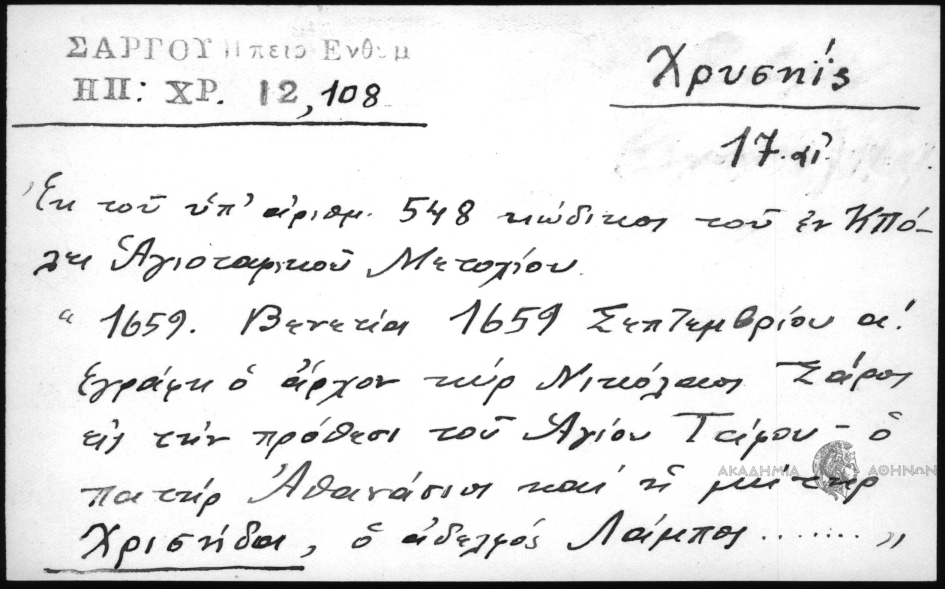 ΣΑΡΓΟΥ Ηπειρ Ενθυμ
ΗΠ: ΧΡ. 12, 108
Χρυσηΐς
17. αἰ.
Ἐκ τοῦ ὑπ' ἀριθμ. 548 κώδικος τοῦ ἐν Κπό-
λει Ἁγιοταφικοῦ Μετοχίου.
" 1659. Βενετία 1659 Σεπτεμβρίου α!
ἐγράφη ὁ ἄρχον κύρ Νικόλαος Σάρος
εἰς τήν πρόθεσι τοῦ Ἁγίου Τάφου - ὁ
πατήρ Ἀθανάσιος καί ἡ μήτηρ
Χρισηίδα, ὁ ἀδελφός Λάμπος ........ "
ΑΚΑΔΗΜΙΑ ΑΘΗΝΩΝ